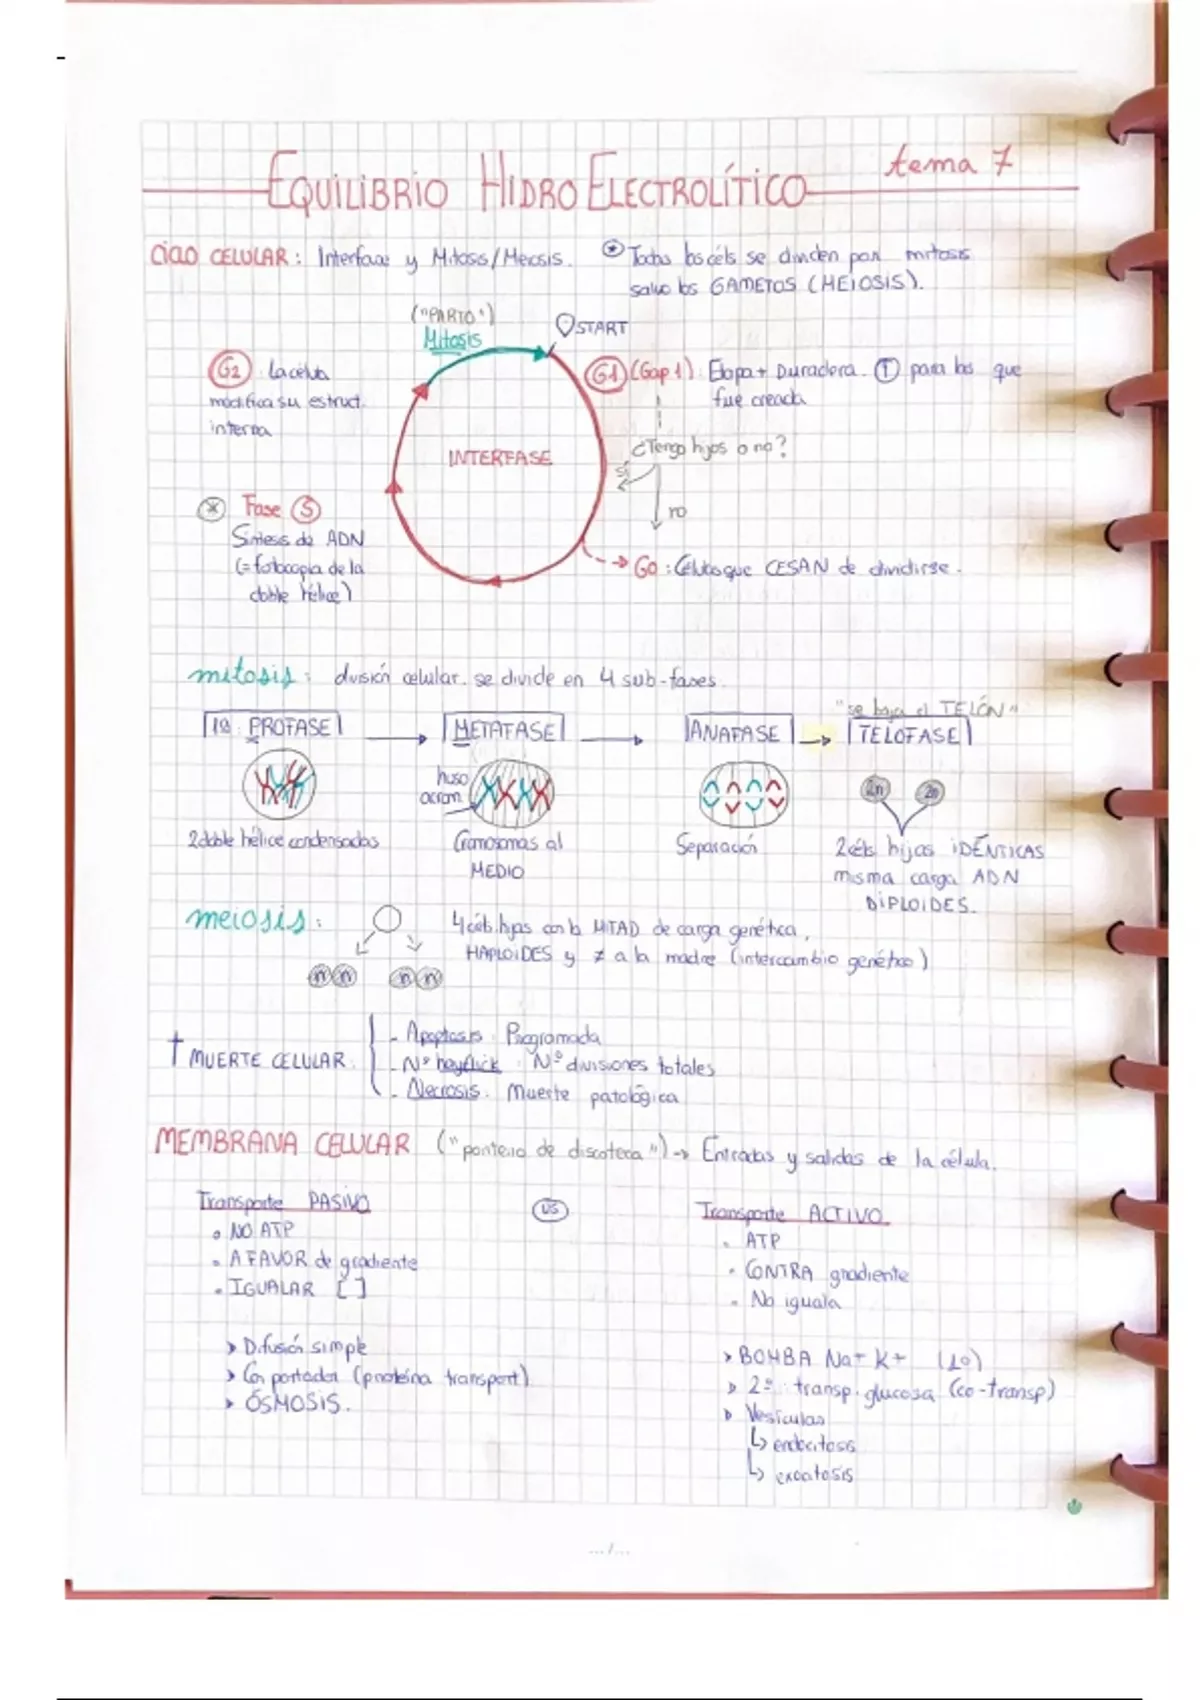 EQUILIBRIO HIDROELECTROLÍTICO tema 7
CICLO CELULAR: Interfase y Mitosis/Meiosis.
* Todas las céls se dividen por mitosis
salvo los GAMETOS (MEIOSIS).
("PARTO")
Mitosis
START
G2 La célula
modifica su estruct.
interna
G1 (Gap 1): Etapa + Duradera. T para las que
fue creada
INTERFASE
¿Tengo hijos o no?
sí
no
* Fase S
Síntesis de ADN
(= fotocopia de la
doble hélice)
G0: Células que CESAN de dividirse.
mitosis: división celular. se divide en 4 sub-fases.
"se baja el TELÓN"
PROFASE → METAFASE → ANAFASE → TELOFASE
huso
acrom.
2n 2n
2 doble hélice condensadas
Cromosomas al
MEDIO
Separación
2 céls hijas IDÉNTICAS
misma carga ADN
DIPLOIDES.
meiosis:
4 céls. hijas con la MITAD de carga genética,
HAPLOIDES y ≠ a la madre (intercambio genético)
n n n n
† MUERTE CELULAR
- Apoptosis: Programada
- Nº hayflick: Nº divisiones totales
- Necrosis. Muerte patológica
MEMBRANA CELULAR ("portero de discoteca") → Entradas y salidas de la célula.
Transporte PASIVO
• NO ATP
• A FAVOR de gradiente
• IGUALAR [ ]
> Difusión simple
> Con portador (proteína transport)
> ÓSMOSIS.
VS
Transporte ACTIVO
• ATP
• CONTRA gradiente
• No iguala
> BOMBA Na+ K+ (1º)
> 2º: transp. glucosa (co-transp)
> Vesículas
↳ endocitosis
↳ exocitosis
.../...